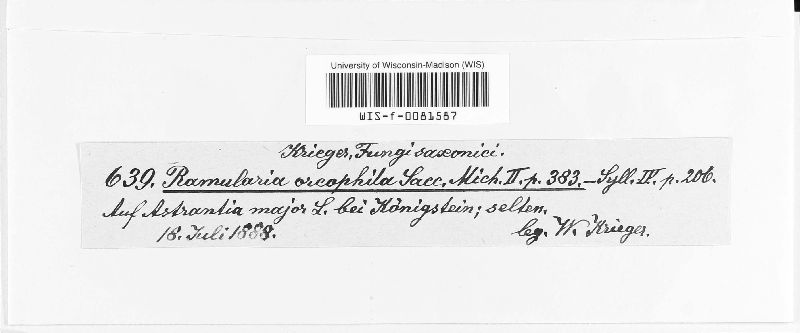 University of Wisconsin-Madison (WIS)
WIS-f-0081587
Krieger, Fungi saxonici.
639. Ramularia oreophila Sacc. Mich. II. p. 383. – Syll. IV. p. 206.
Auf Astrantia major L. bei Königstein; selten.
18. Juli 1888. leg. W. Krieger.